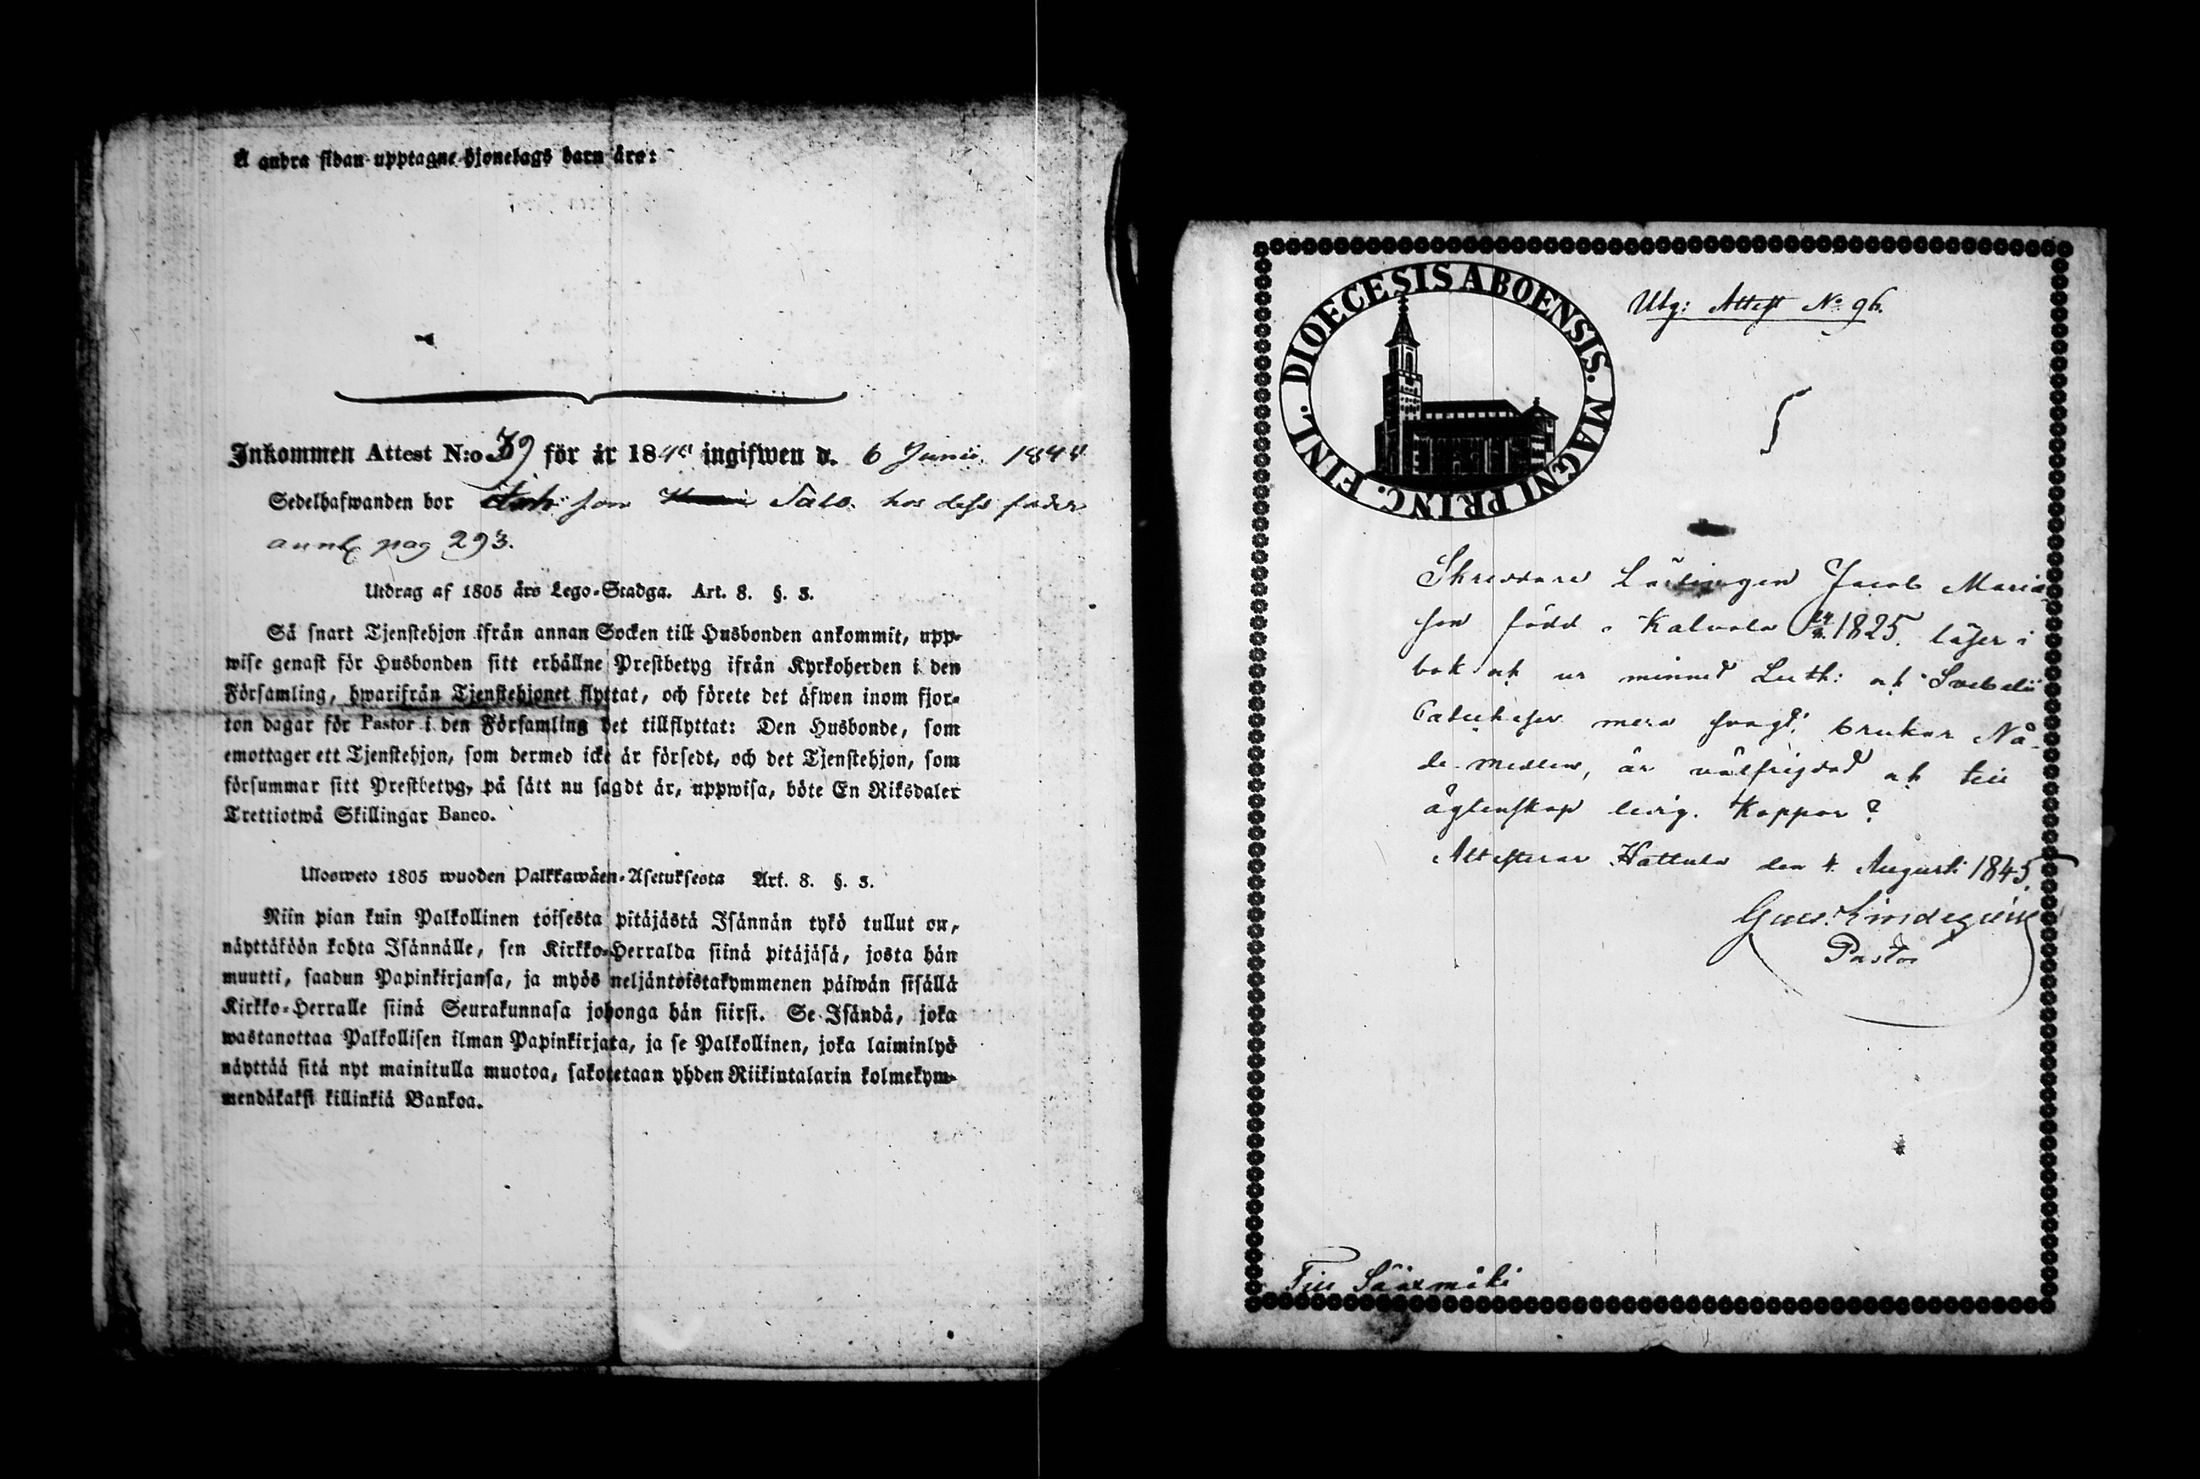 Å andra sidan upptagne hjonelags barn äro:
Inkommen Attest N:o 39 för år 1844 ingifwen d. 6 Junii 1844
Sedelhafwanden bor som hos dess fader
pag 293.
Utdrag af 1805 års Lego-Stadga. Art. 8. §. 3.
Så snart Tjenstehjon ifrån annan Socken till Husbonden ankommit, upp-
wise genast för Husbonden sitt erhållne Prestbetyg ifrån Kyrkoherden i den
Församling, hwarifrån Tjenstehjonet flyttat, och förete det äfwen inom fjor-
ton dagar för Pastor i den Församling det tillflyttat: Den Husbonde, som
emottager ett Tjenstehjon, som dermed icke är försedt, och det Tjenstehjon, som
försummar sitt Prestbetyg, på sätt nu sagdt är, uppwisa, böte En Riksdaler
Trettiotwå Skillingar Banco.
Ulosweto 1805 wuoden Palkkawäen-Asetuksesta Art. 8. §. 3.
Niin pian kuin Palkollinen toisesta pitäjästä Isännän tykö tullut on,
näyttäköön kohta Isännälle, sen Kirkko-Herralda siinä pitäjäsä, josta hän
muutti, saadun Papinkirjansa, ja myös neljäntoistakymmenen päiwän sisällä
Kirkko-Herralle siinä Seurakunnasa johonga hän siirsi. Se Isändä, joka
wastanottaa Palkollisen ilman Papinkirjata, ja se Palkollinen, joka laiminlyö
näyttää sitä nyt mainitulla muotoa, sakotetaan yhden Riikintalarin kolmekym-
mendäkaksi killinkiä Bankoa.
DIOECESIS ABOENSIS. MAGNI PRINC. FINL.
Utg: Attest No 96.
Skreddare Lärlingen Jacob Maria
son född i Kalvola år 1825. läser i
bok och ur minnet Luth: och Svebelii
Catecheser mera svagt, brukar Nå-
de medlen, är välfrejdad och till
ägtenskap ledig. Koppor?
Attesterar Hattula den 4 Augusti 1845.
Gust. Lindegrén
Pastor
Till Sääxmäki